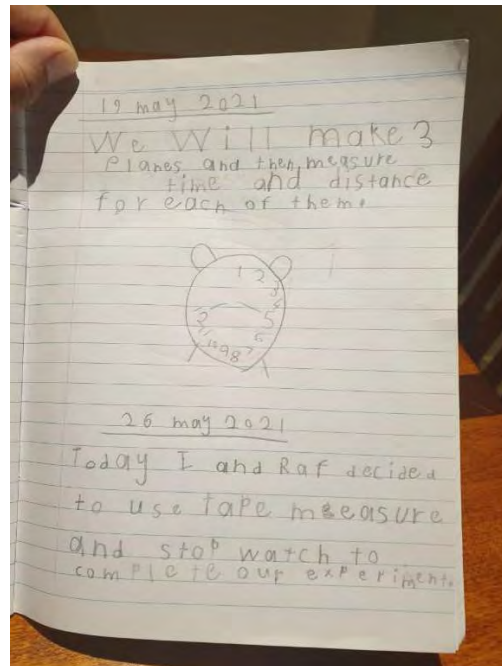 19 may 2021
We Will make 3
Planes and then measure
time and distance
for each of them.
1 2
3
4
5
6
7
8
9
10
11
26 may 2021
Today I and Raf decided
to use tape measure
and stop watch to
complete our experiment.